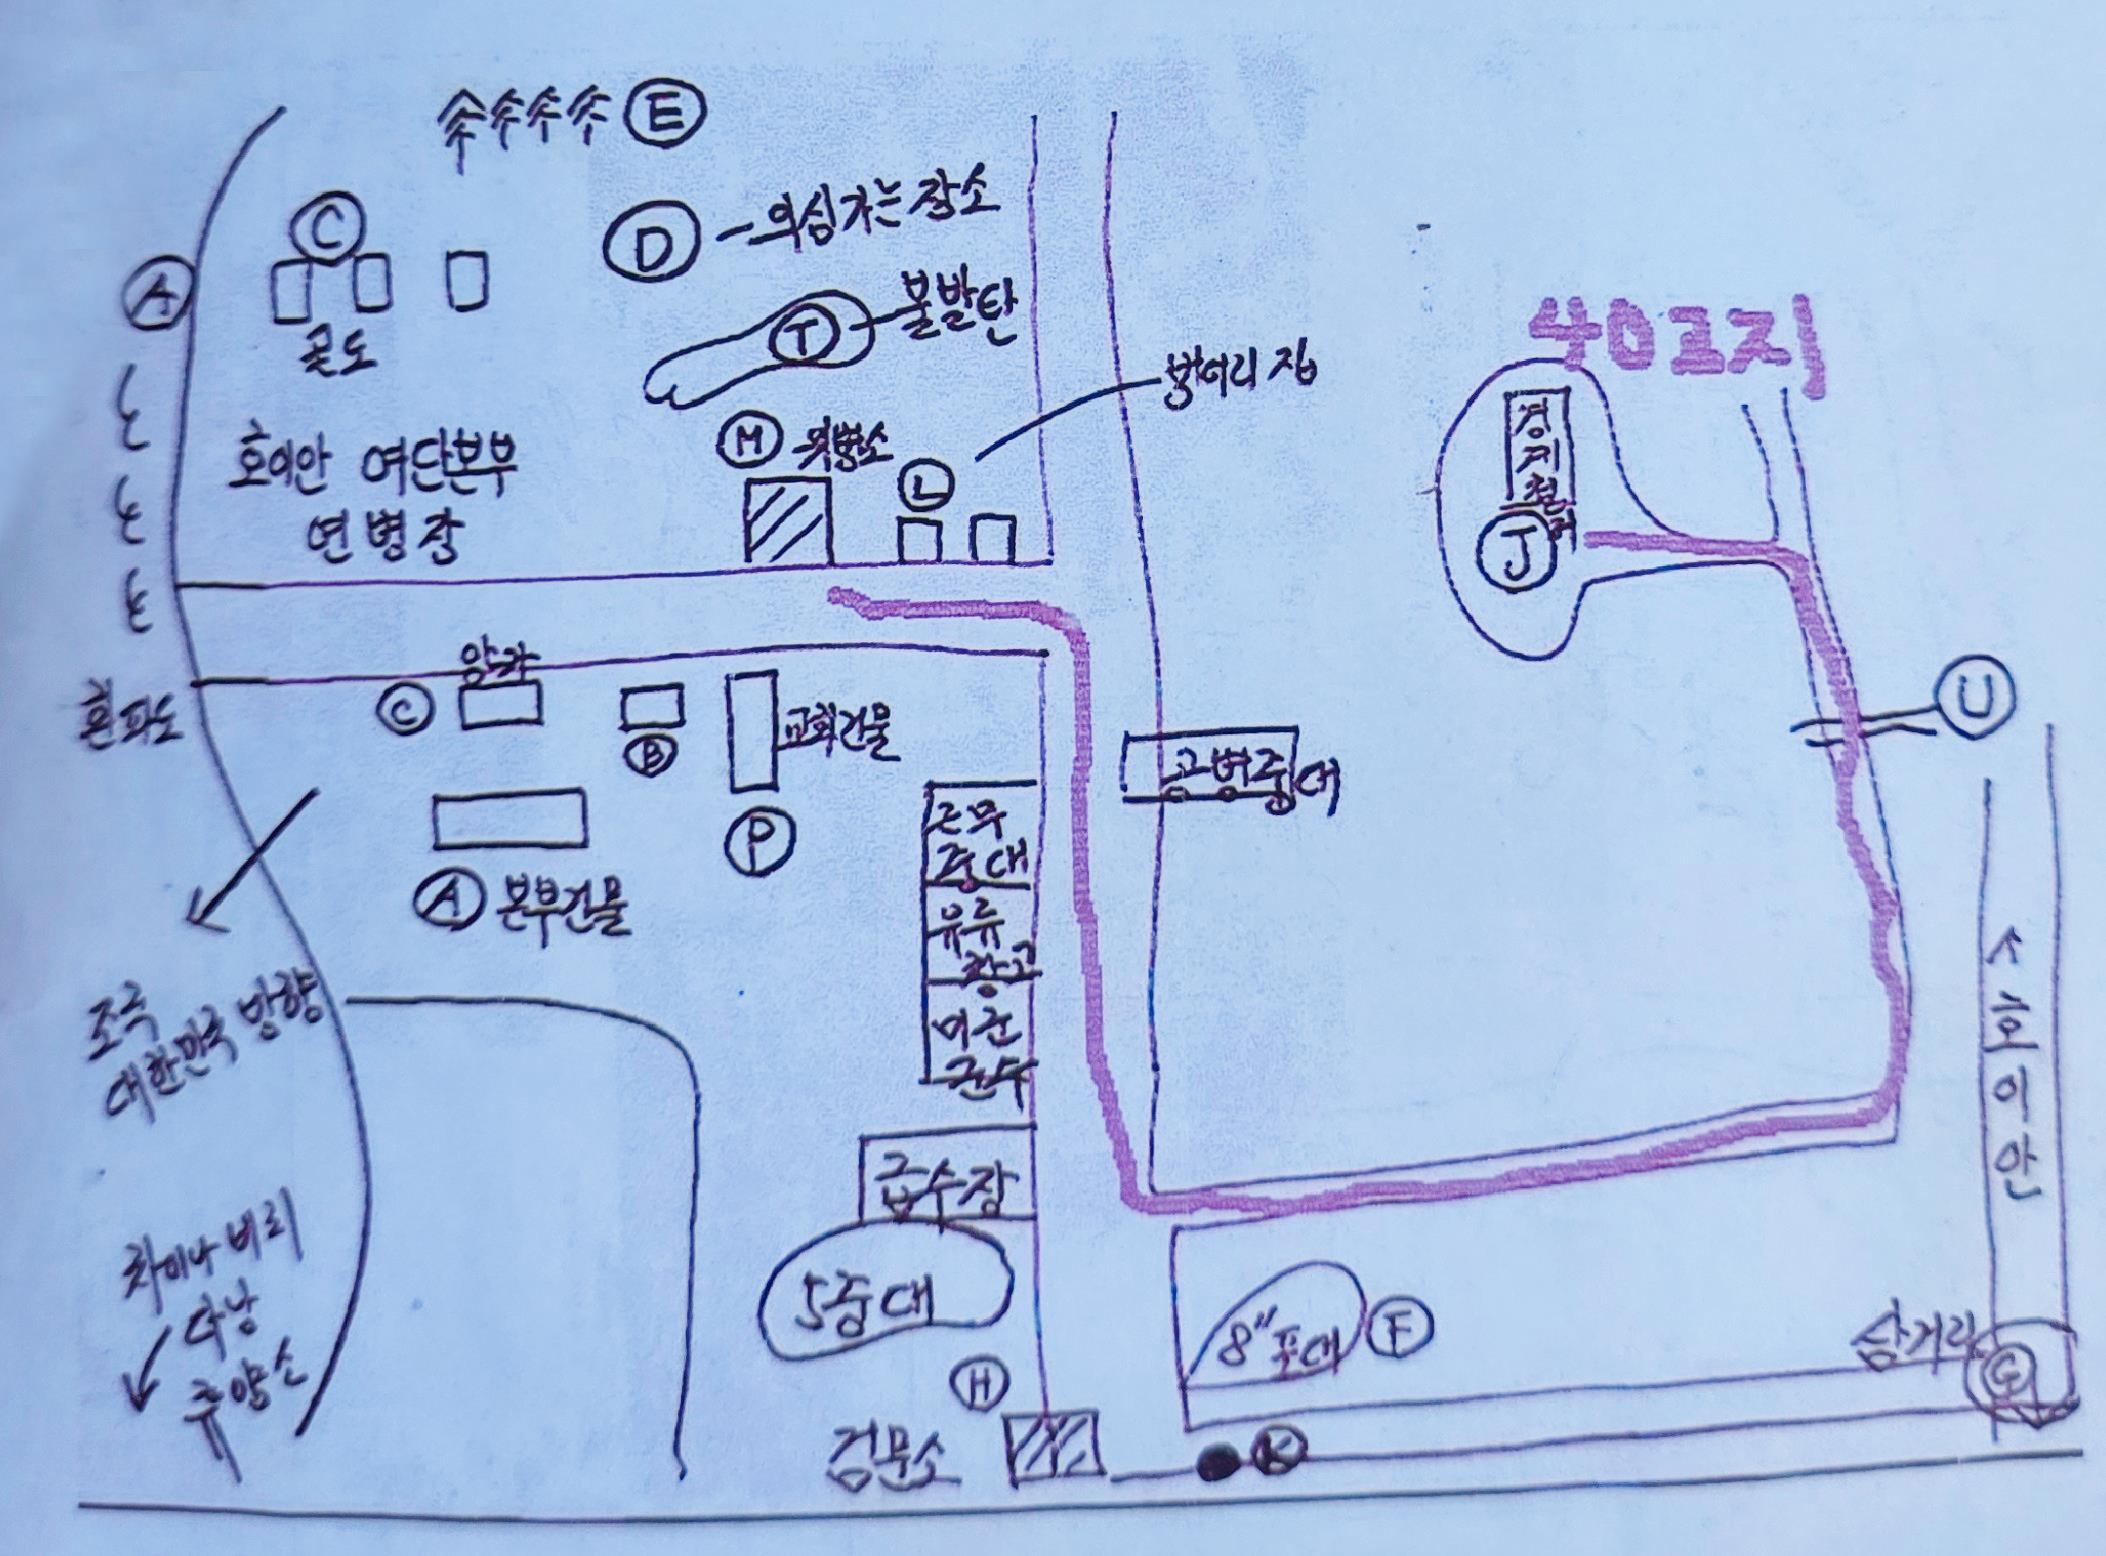 E
C
D
-의심가는장소
A
T
불발탄
콘도
벙어리 집
40고지
M
위병소
L
호이안 여단본부
연병장
J
U
C
B
교회건물
P
공병중대
근무
중대
A
본부건물
유류
창고
미군
군수
조국
대한민국 방향
↑호이안
급수장
차이나비치
다낭
휴양소
5중대
8"포대
F
삼거리
G
H
검문소
K